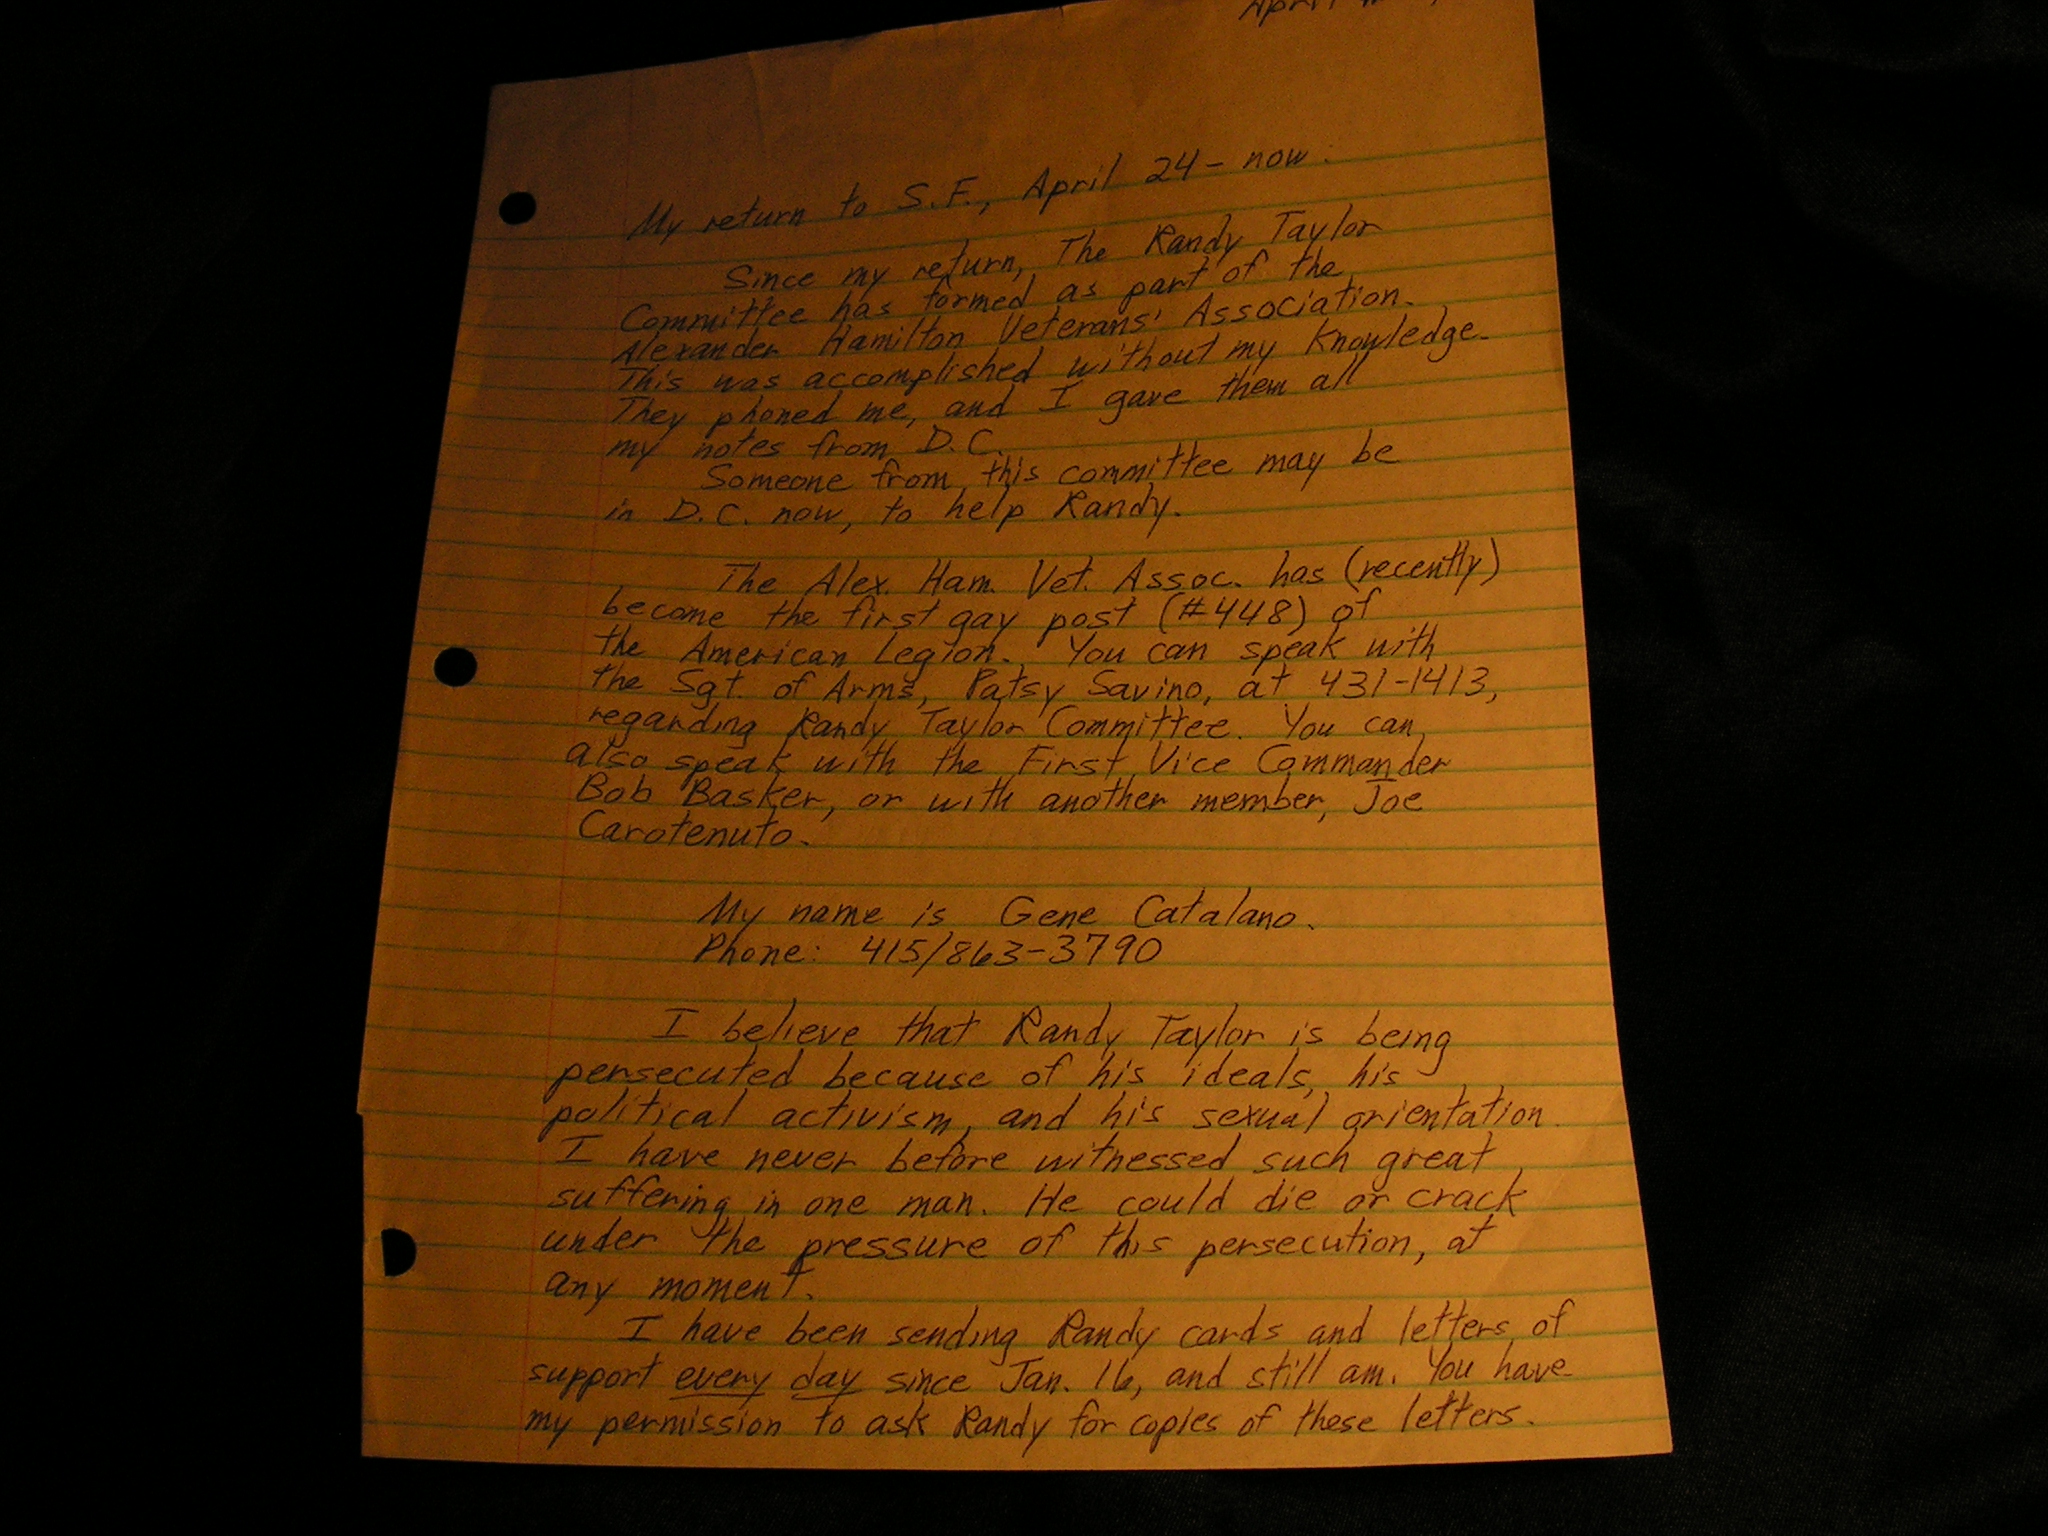 April
My return to S.F., April 24 - now.
Since my return, The Randy Taylor
Committee has formed as part of the
Alexander Hamilton Veterans' Association.
This was accomplished without my knowledge.
They phoned me, and I gave them all
my notes from D.C.
Someone from this committee may be
in D.C. now, to help Randy.
The Alex. Ham. Vet. Assoc. has (recently)
become the first gay post (#448) of
the American Legion. You can speak with
the Sgt. of Arms, Patsy Savino, at 431-1413,
regarding Randy Taylor Committee. You can
also speak with the First Vice Commander
Bob Basker, or with another member, Joe
Carotenuto.
My name is Gene Catalano.
Phone: 415/863-3790
I believe that Randy Taylor is being
persecuted because of his ideals, his
political activism, and his sexual orientation.
I have never before witnessed such great
suffering in one man. He could die or crack
under the pressure of this persecution, at
any moment.
I have been sending Randy cards and letters of
support every day since Jan. 16, and still am. You have
my permission to ask Randy for copies of these letters.